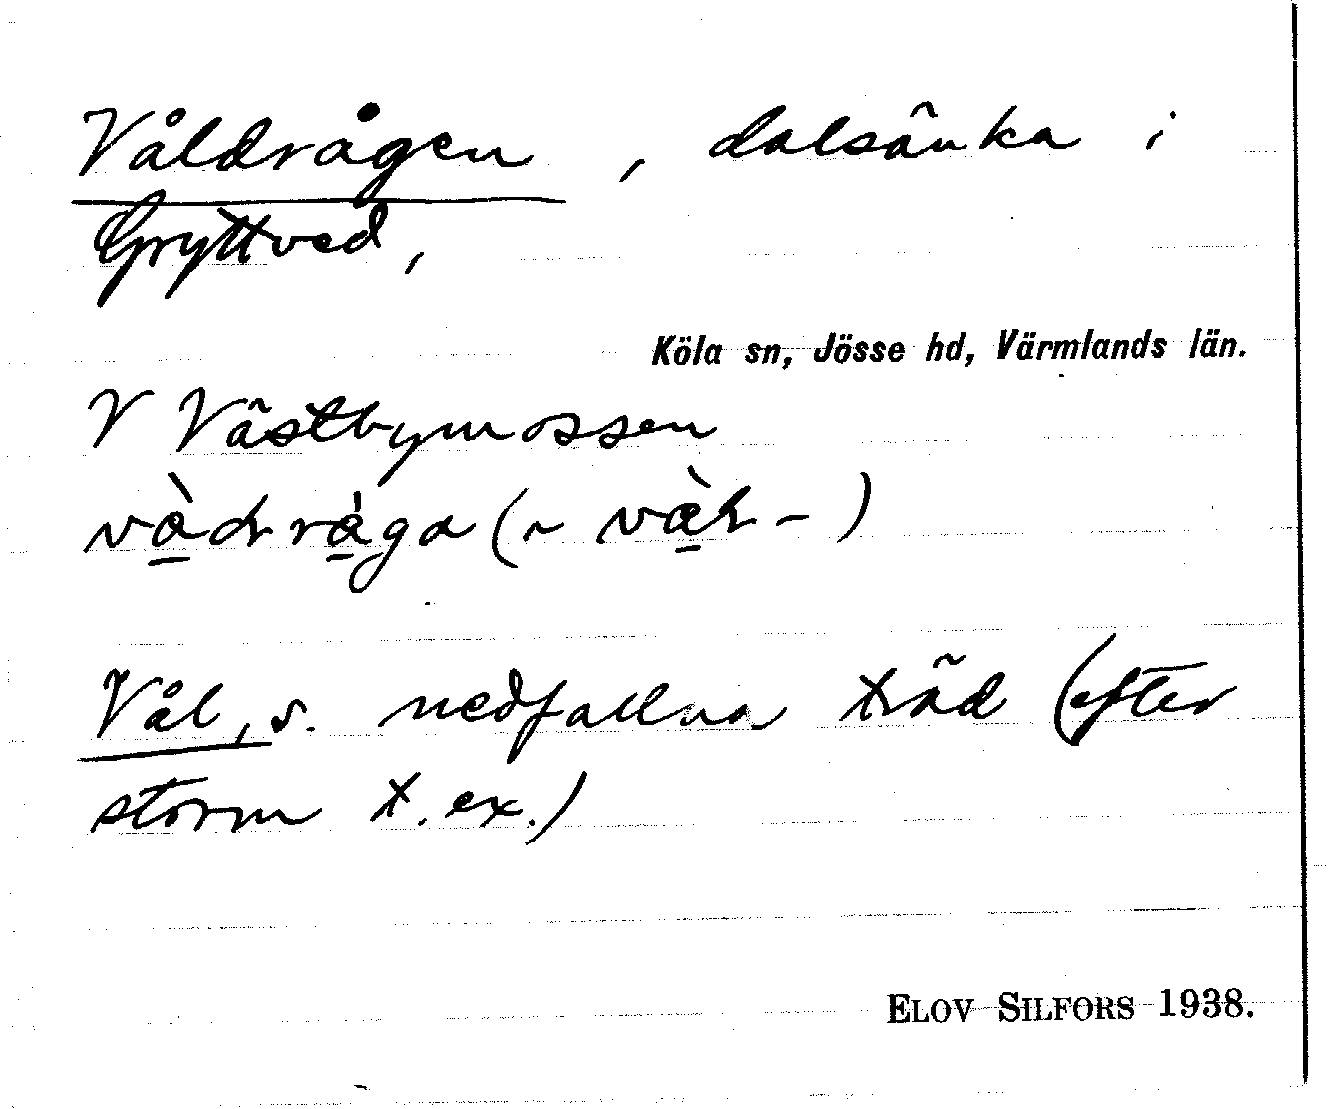 Våldrågen, dalsänka i
Gryttved,
Köla sn, Jösse hd, Värmlands län.
V Västbymossen
Vål, s. nedfallna träd (efter
storm t. ex.)
ELOV SILFORS 1938.